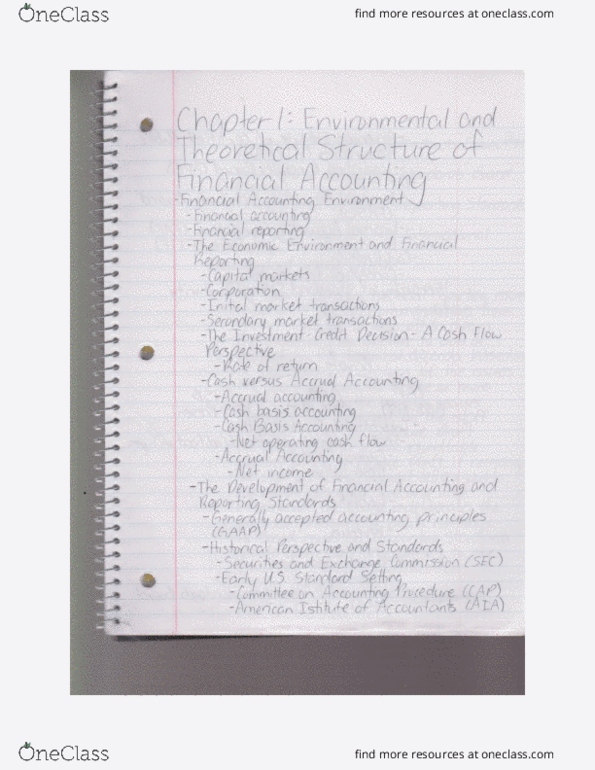 OneClass
find more resources at oneclass.com
Chapter 1: Environmental and
Theoretical Structure of
Financial Accounting
-Financial Accounting Environment
-Financial accounting
-Financial reporting
-The Economic Environment and Financial
Reporting
-Capital markets
-Corporation
-Initial market transactions
-Secondary market transactions
-The Investment-Credit Decision- A Cash Flow
Perspective
-Rate of return
-Cash versus Accrual Accounting
-Accrual accounting
-Cash basis accounting
-Cash Basis Accounting
-Net operating cash flow
-Accrual Accounting
-Net income
-The Development of Financial Accounting and
Reporting Standards
-Generally accepted accounting principles
(GAAP)
-Historical Perspective and Standards
-Securities and Exchange Commission (SEC)
-Early U.S. Standard Setting
-Committee on Accounting Procedure (CAP)
-American Istitute of Accountants (AIA)
OneClass
find more resources at oneclass.com